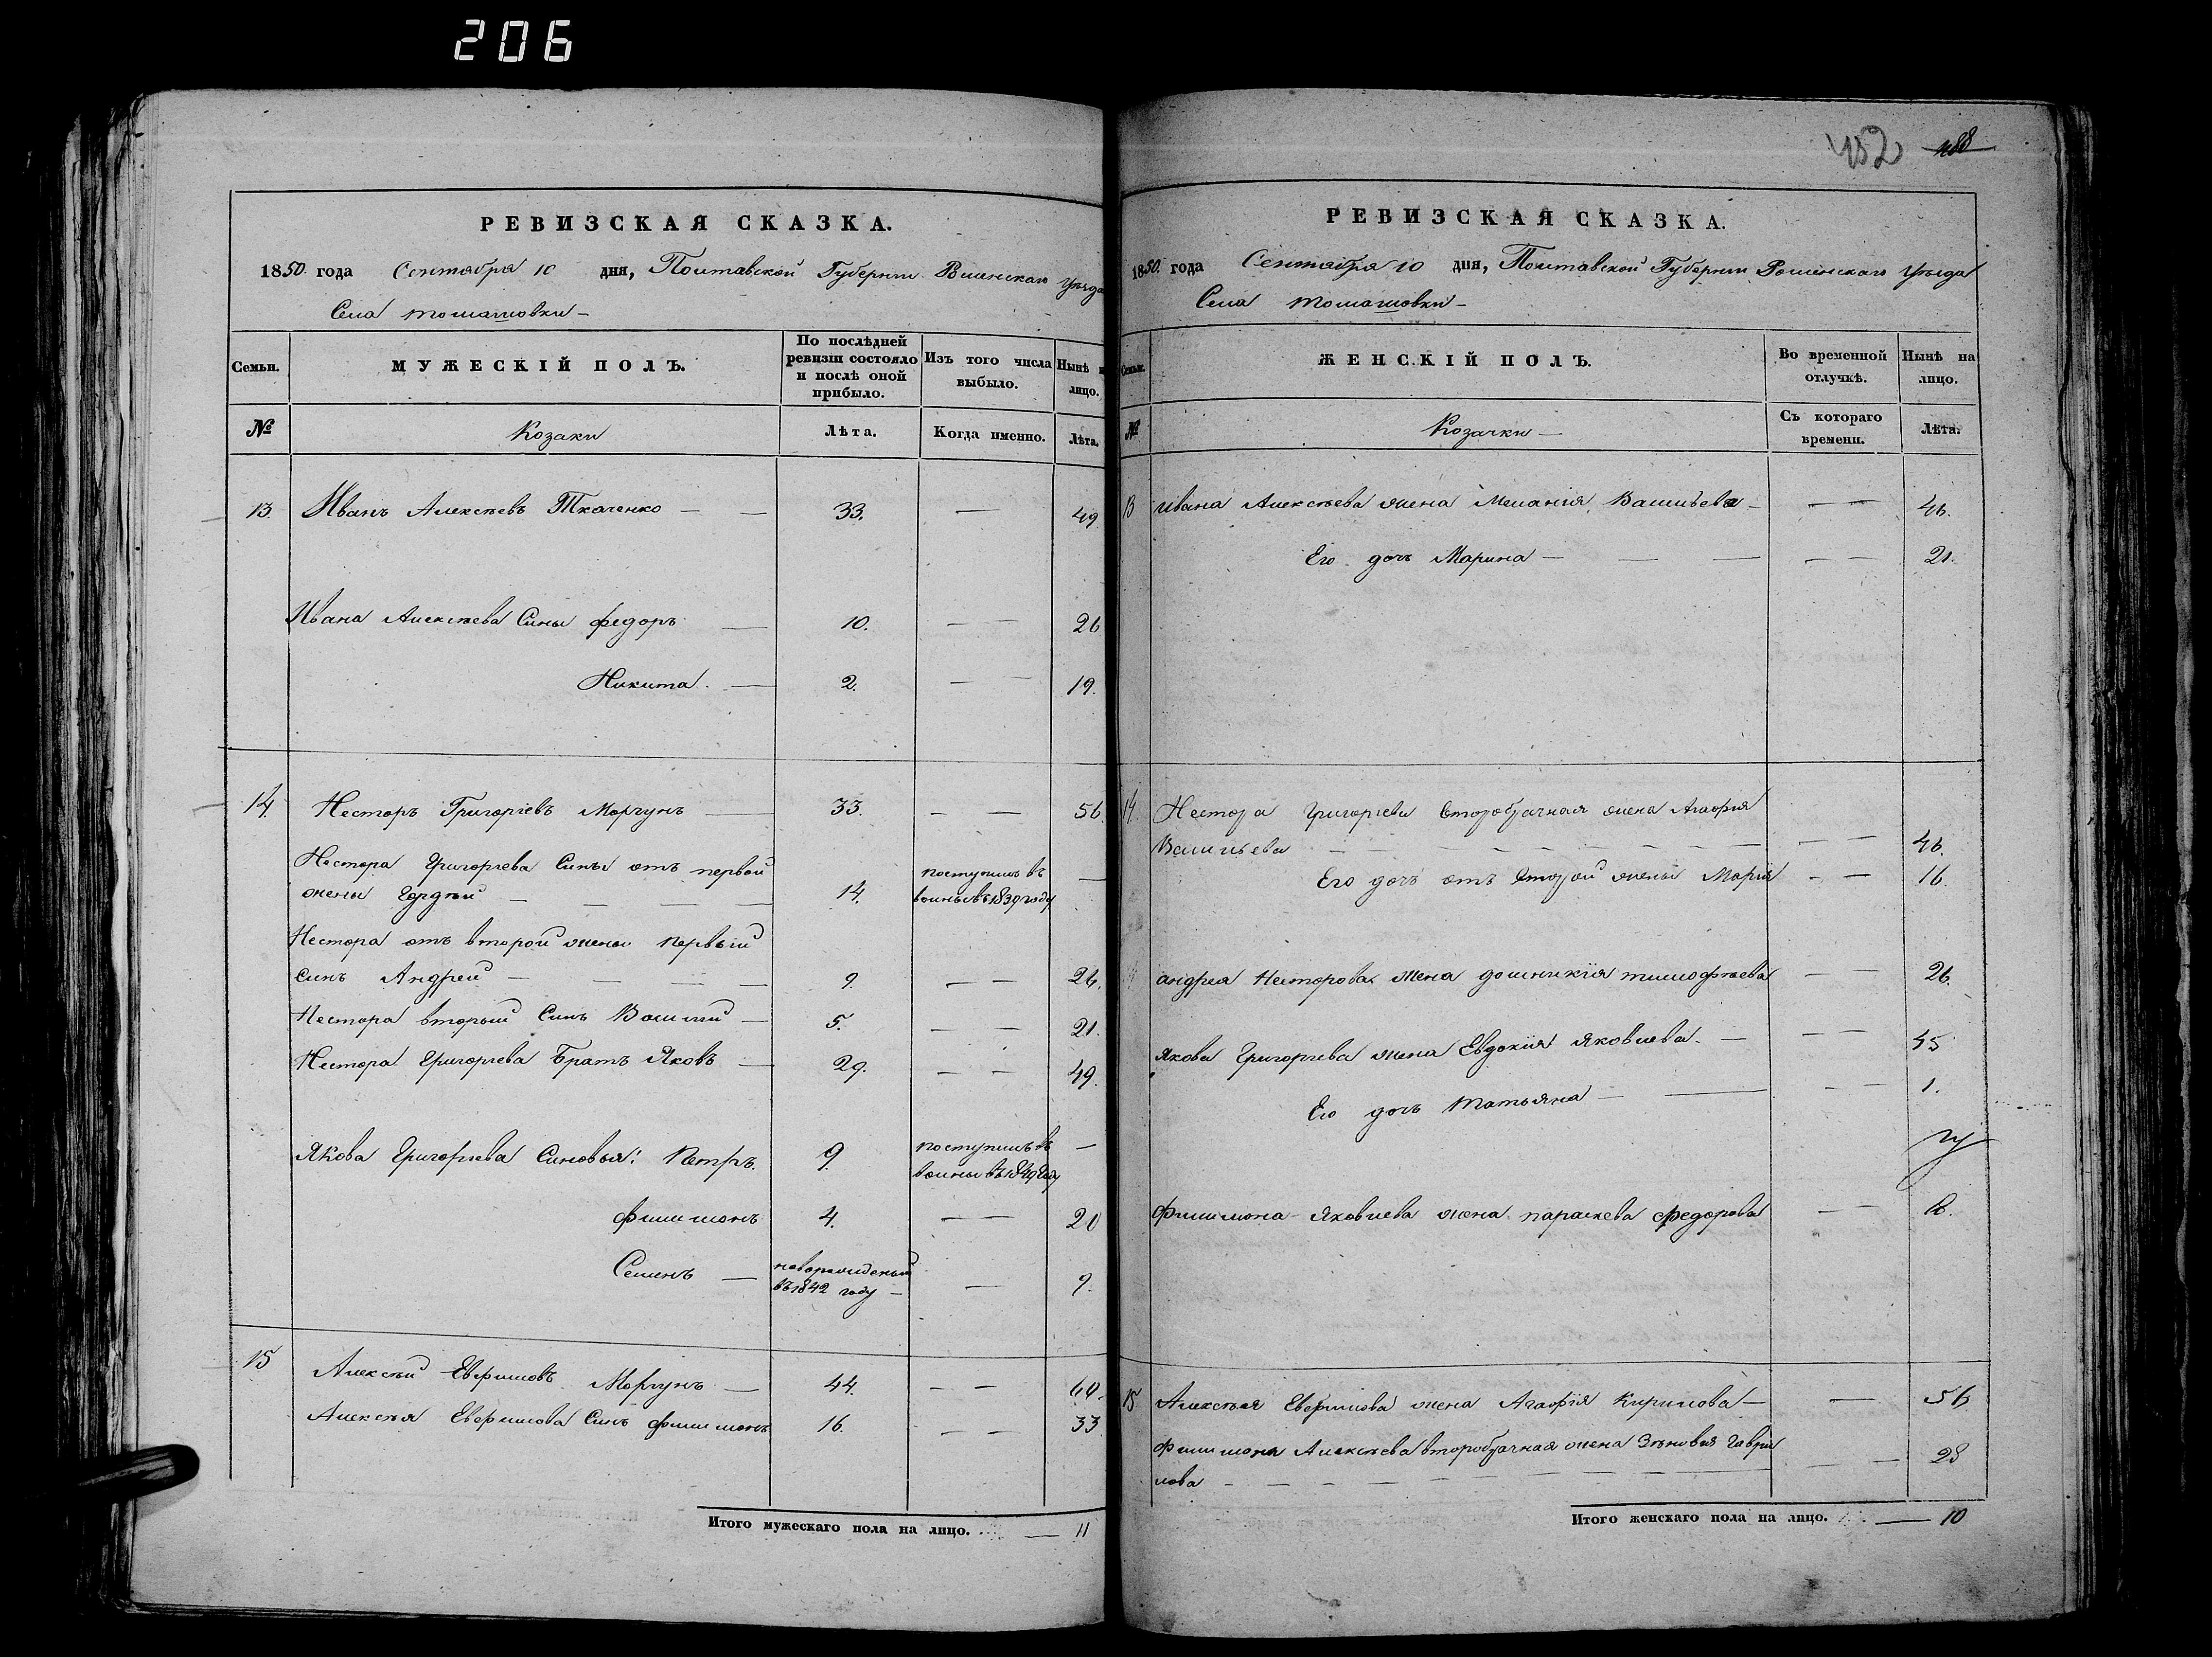 206
РЕВИЗСКАЯ СКАЗКА.
1850. года Сентября 10 дня, Полтавской Губернии Роменскаго Уѣзда
Села Томашовки –
Семьи. МУЖЕСКІЙ ПОЛЪ. По послѣдней ревизіи состояло и послѣ оной прибыло. Изъ того числа выбыло. Нынѣ на лицо.
№ Козаки Лѣта. Когда именно. Лѣта.
13. Иванъ Алексѣевъ Ткаченко — — 33. — 49
Ивана Алексѣева Сины федоръ — 10. — — 26
Никита. — 2. — — 19.
14. Несторъ Григорьевъ Моргунъ — 33. — — 56.
Нестора Григорьева Сины отъ первой
жены Гордѣй — — — — 14. поступилъ въ воины въ 1839 году —
Нестора отъ второй жены первый
синъ Андрей — — — — 9. — — 26.
Нестора вторый Синъ Василій — 5. — — 21.
Нестора Григорьева Братъ Яковъ — 29. — — 49.
Якова Григорьева Синовья: Петръ. 9. поступилъ въ воины въ 1849 году —
филимонъ 4. — — 20
Семенъ — новорожденый въ 1842 году — — 9.
15 Алексѣй Евфимовъ Моргунъ — 44. — — 60.
Алексѣя Евфимова Синъ филимонъ 16. — — 33
Итого мужескаго пола на лицо. — 11
452 488
РЕВИЗСКАЯ СКАЗКА.
1850. года Сентября 10 дня, Полтавской Губернии Роменскаго Уѣзда
Села Томашовки –
Семьи. ЖЕНСКІЙ ПОЛЪ. Во временной отлучкѣ. Нынѣ на лицо.
№ Козачки — Съ котораго времени. Лѣта.
13 Ивана Алексѣева жена Меланія Васильева — — — 46.
Его дочь Марина — — — — — 21.
14. Нестора Григорьева второбрачная жена Агафия
Васильева — — — — — — — — — — 46.
Его дочь отъ второй жены Марія — — 16.
андрея Несторова жена домникія тимофѣева — — 26.
Якова Григорьева жена Евдокія Яковлева. — — — 45
Его дочь Татьяна — — — — 1.
филимона Яковлева жена параскева федорова — —
15 Алексѣя Евфимова жена Агафія Кирилова — — 56
филимона Алексѣева второбрачная жена Зѣновія Гаври
лова — — — — — — — — — — 28
Итого женскаго пола на лицо. — 10